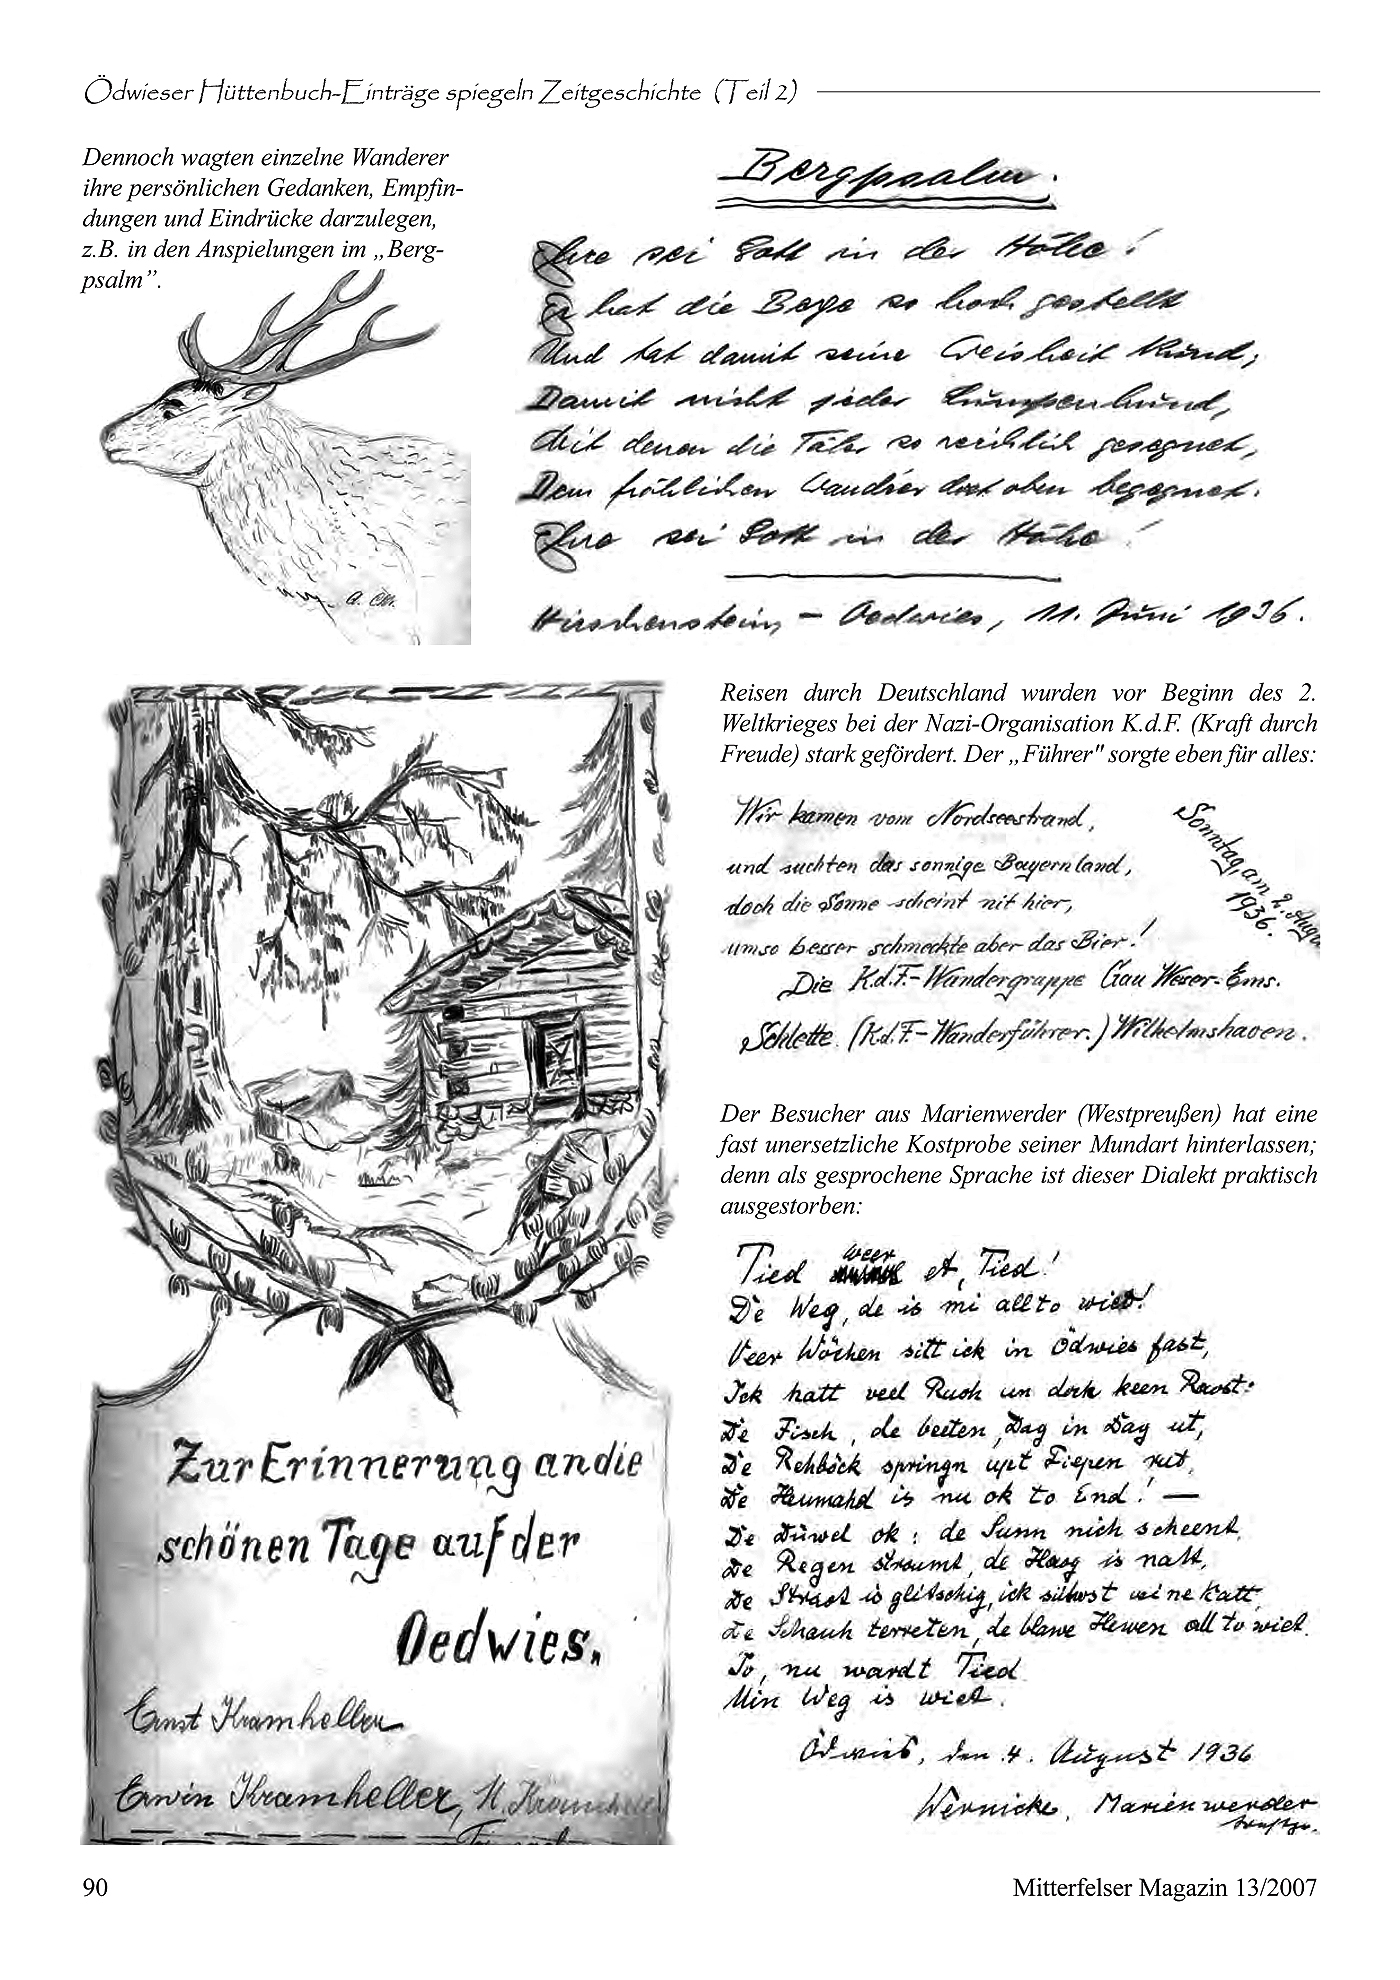 Ödwieser Hüttenbuch-Einträge spiegeln Zeitgeschichte (Teil 2)
Dennoch wagten einzelne Wanderer
ihre persönlichen Gedanken, Empfin-
dungen und Eindrücke darzulegen,
z.B. in den Anspielungen im „Berg-
psalm”.
Bergpsalm.
Ehre sei Gott in der Höhe!
Er hat die Berge so hoch gestellt
Und tat damit seine Weisheit kund;
Damit nicht jeder Lumpenhund,
Mit denen die Täler so reichlich gesegnet,
Dem fröhlichen Wandrer dort oben begegnet.
Ehre sei Gott in der Höhe!
Hirschenstein, – Oedwies, 11. Juni 1936.
Reisen durch Deutschland wurden vor Beginn des 2.
Weltkrieges bei der Nazi-Organisation K.d.F. (Kraft durch
Freude) stark gefördert. Der „Führer" sorgte eben für alles:
Wir kamen vom Nordseestrand,
und suchten das sonnige Bayernland,
doch die Sonne scheint nit hier,
umso besser schmeckte aber das Bier!
Die K.d.F.-Wandergruppe Gau Weser-Ems.
Schlette. (K.d.F.-Wanderführer.) Wilhelmshaven.
Sonntag, am 2. Augu
1936.
Der Besucher aus Marienwerder (Westpreußen) hat eine
fast unersetzliche Kostprobe seiner Mundart hinterlassen;
denn als gesprochene Sprache ist dieser Dialekt praktisch
ausgestorben:
Tied weer et, Tied!
De Weg, de is mi allto wiet!
Veer Wöchen sitt ick in Ödwies fast,
Ick hatt veel Ruoh un doch keen Raost:
De Fisch, de beeten, Dag in Dag ut,
De Rehböck springn upt Fiepen rut,
De Heumahd is nu ok to End! —
De Düwel ok: de Sunn nich scheent,
De Regen straumt, de Haog is natt,
De Straot is glitschig, ick sülwst eine Katt,
De Schauh terreten, de blawe Hewen all to wiet.
Jo, nu wardt Tied
Min Weg is wiet.
Ödwies, den 4. August 1936
Wernicke, Marienwerder
Zur Erinnerung an die
schönen Tage auf der
Oedwies.
Ernst Kramheller
Erwin Kramheller, M. Kramhell
90
Mitterfelser Magazin 13/2007